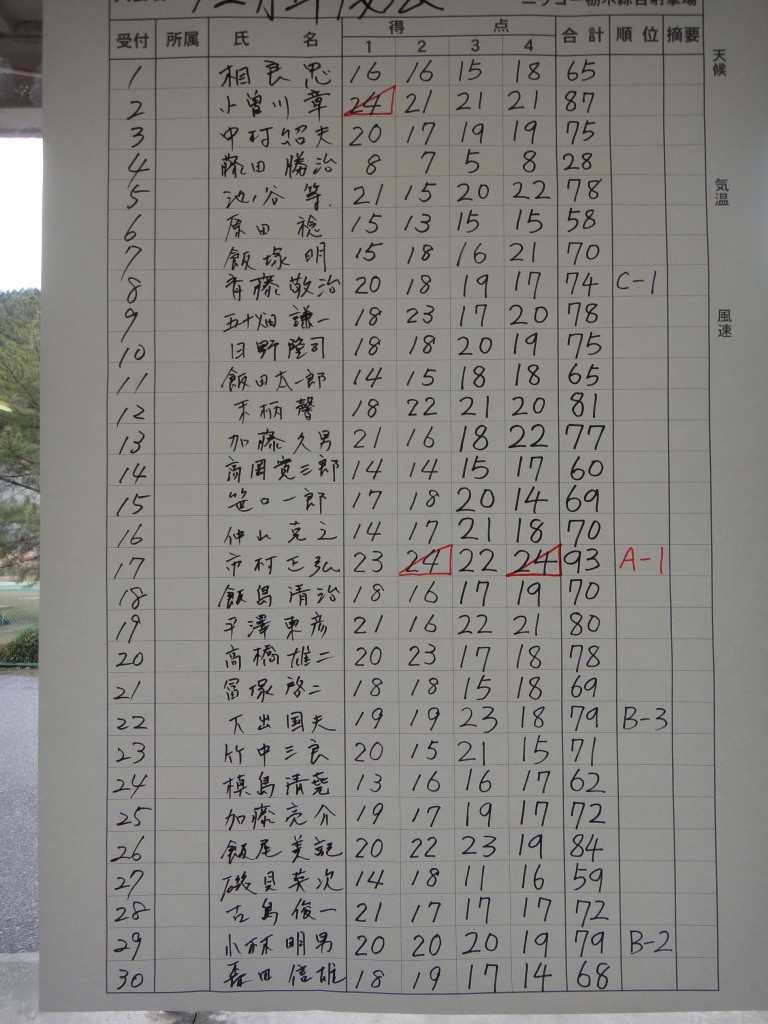 ニッコー栃木綜合射撃場
受付 所属 氏 名 得 点 合計 順位 摘要
1 2 3 4
天候
気温
風速
1 相良忠 16 16 15 18 65
2 小曽川章 24 21 21 21 87
3 中村昭夫 20 17 19 19 75
4 藤田勝治 8 7 5 8 28
5 池ノ谷等 21 15 20 22 78
6 原田稔 15 13 15 15 58
7 飯塚明 15 18 16 21 70
8 斉藤敬治 20 18 19 17 74 C-1
9 五十畑謙一 18 23 17 20 78
10 日野隆司 18 18 20 19 75
11 飯田太一郎 14 15 18 18 65
12 18 22 21 20 81
13 加藤久男 21 16 18 22 77
14 高岡寛三郎 14 14 15 17 60
15 笹口一郎 17 18 20 14 69
16 仲山克之 14 17 21 18 70
17 市村正弘 23 24 22 24 93 A-1
18 飯島清治 18 16 17 19 70
19 平澤東彦 21 16 22 21 80
20 高橋雄二 20 23 17 18 78
21 冨塚啓二 18 18 15 18 69
22 大出国夫 19 19 23 18 79 B-3
23 竹中三良 20 15 21 15 71
24 槙島清尭 13 16 16 17 62
25 加藤亮介 19 17 19 17 72
26 飯尾美記 20 22 23 19 84
27 磯貝英次 14 18 11 16 59
28 古島俊一 21 17 17 17 72
29 小林明男 20 20 20 19 79 B-2
30 森田信雄 18 19 17 14 68